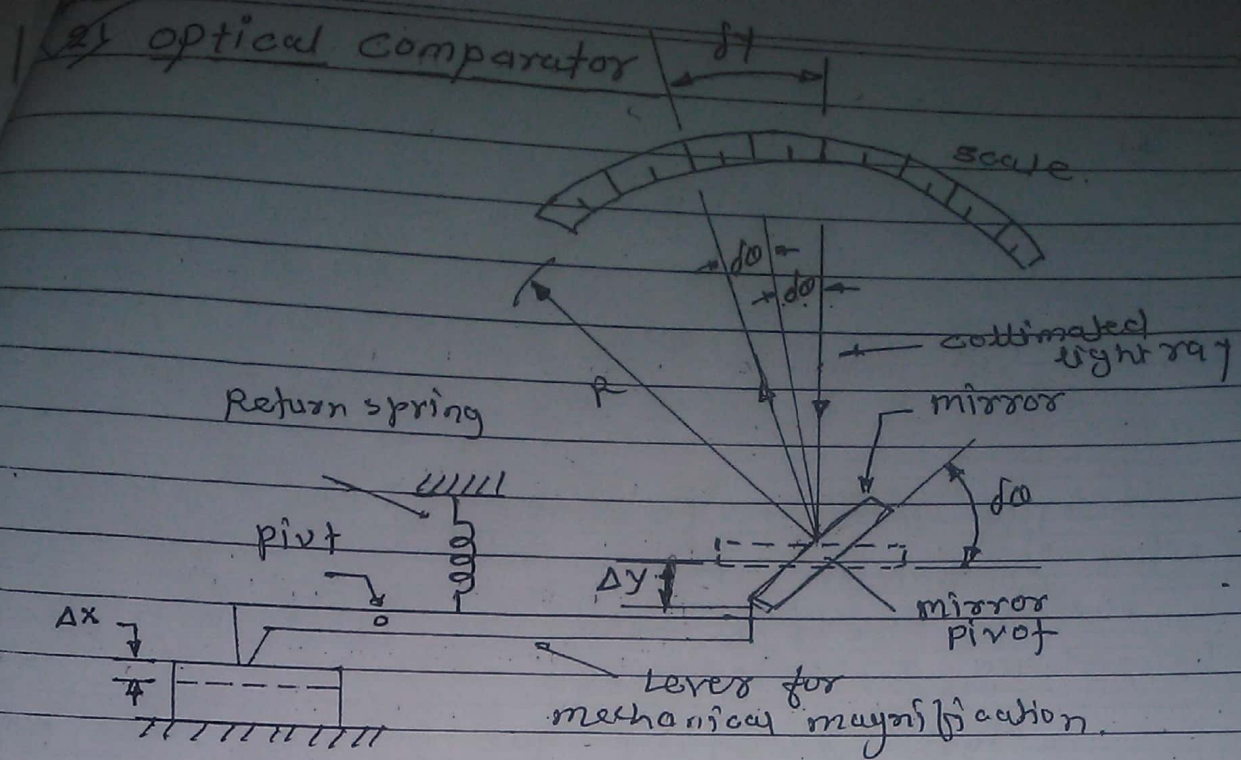 2) optical comparator
dy
scale.
dθ
dθ
collimated
light ray
R
mirror
Return spring
dθ
pivt
Δy
mirror
pivot
Δx
Lever for
mechanical magnification.